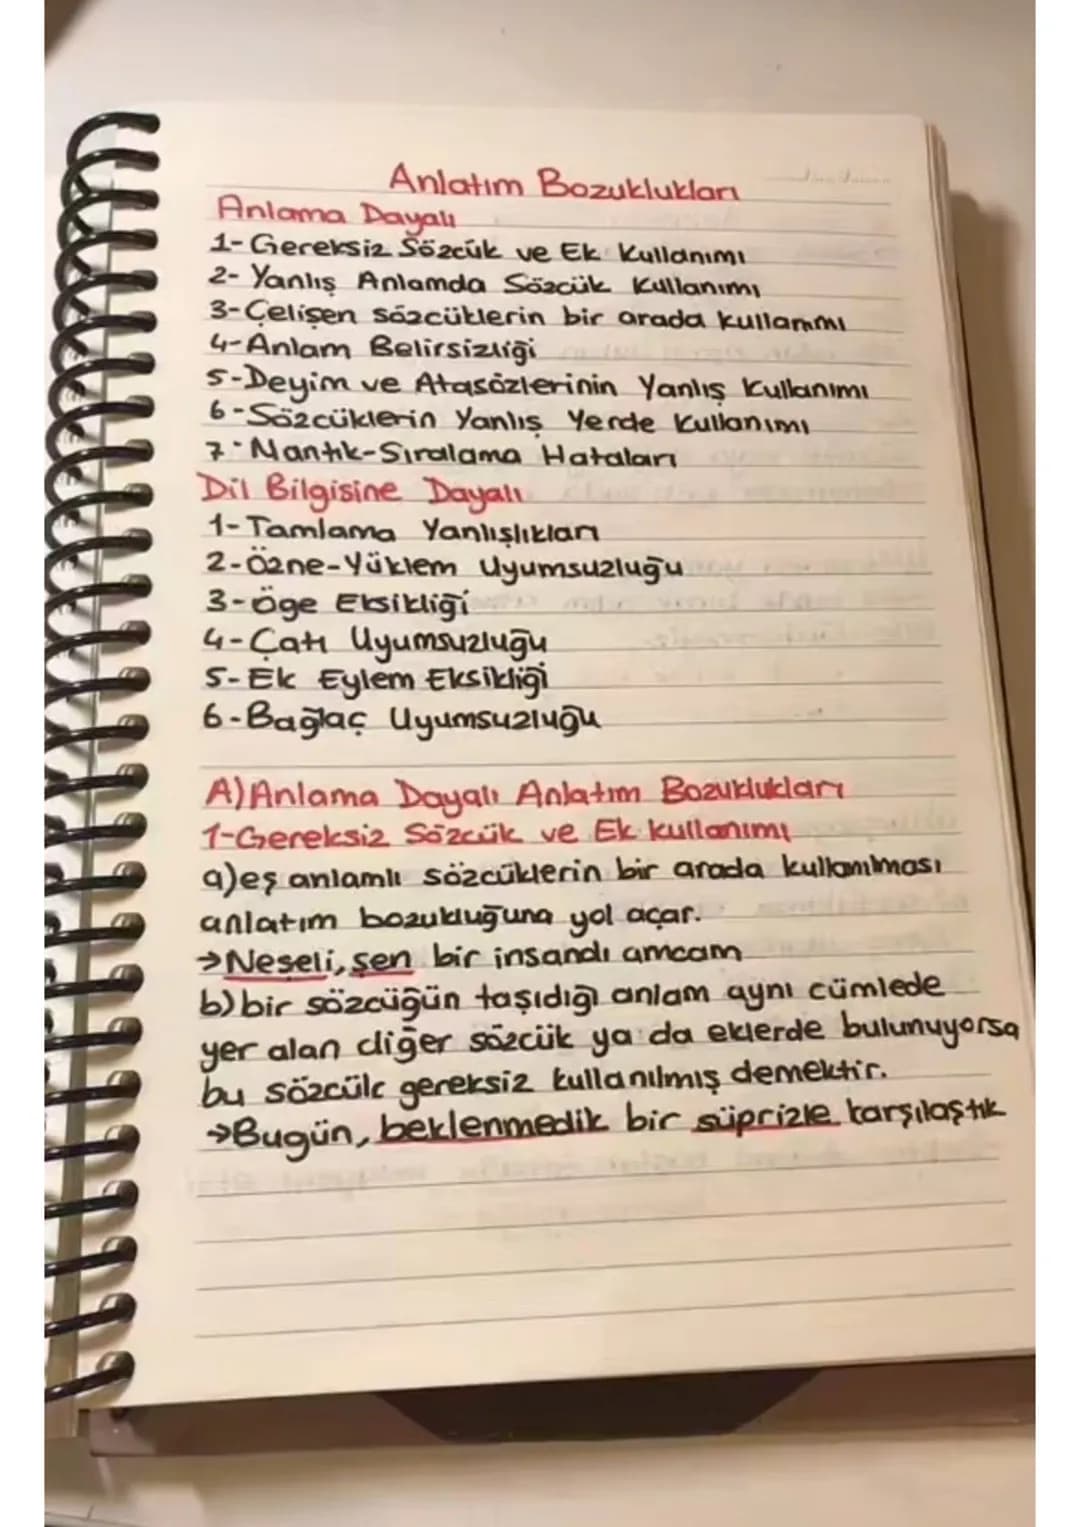 Anlatım Bozuklukları
Anlama Dayalı
1-Gereksiz Sözcük ve Ek Kullanımı
2-Yanlış Anlamda Sözcük Kullanımı
3-Çelişen sözcüklerin bir arada kullanımı
4-Anlam Belirsizliği
5-Deyim ve Atasözlerinin Yanlış Kullanımı
6-Sözcüklerin Yanlış Yerde Kullanımı
7-Mantık-Sıralama Hataları
Dil Bilgisine Dayalı
1-Tamlama Yanlışlıkları
2-Özne-Yüklem Uyumsuzluğu
3-Öge Eksikliği
4-Çatı Uyumsuzluğu
5-Ek Eylem Eksikliği
6-Bağlaç Uyumsuzluğu
A)Anlama Dayalı Anlatım Bozuklukları
1-Gereksiz Sözcük ve Ek kullanımı
a)eş anlamlı sözcüklerin bir arada kullanılması
anlatım bozukluğuna yol açar.
→Neşeli, şen bir insandı amcam
b)bir sözcüğün taşıdığı anlam aynı cümlede
yer alan diğer sözcük ya da eklerde bulunuyorsa
bu sözcük gereksiz kullanılmış demektir.
→Bugün, beklenmedik bir süprizle karşılaştık